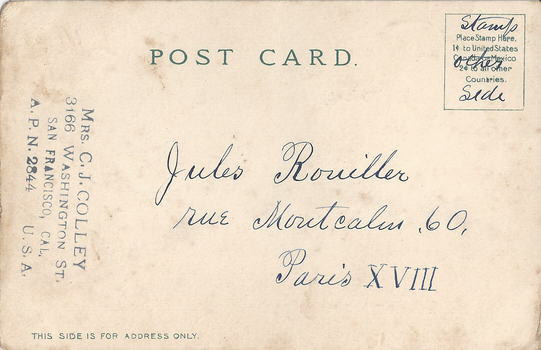 POST CARD.
Stamp
Place Stamp Here.
1¢ to United States
Canada & Mexico
other
2¢ to all other
Countries.
Side
MRS. C. J. COLLEY
3166 WASHINGTON ST.
SAN FRANCISCO, CAL.
A. P. N. 2844 U. S. A.
Jules Rouiller
rue Montcalm, 60,
Paris XVIII
THIS SIDE IS FOR ADDRESS ONLY.